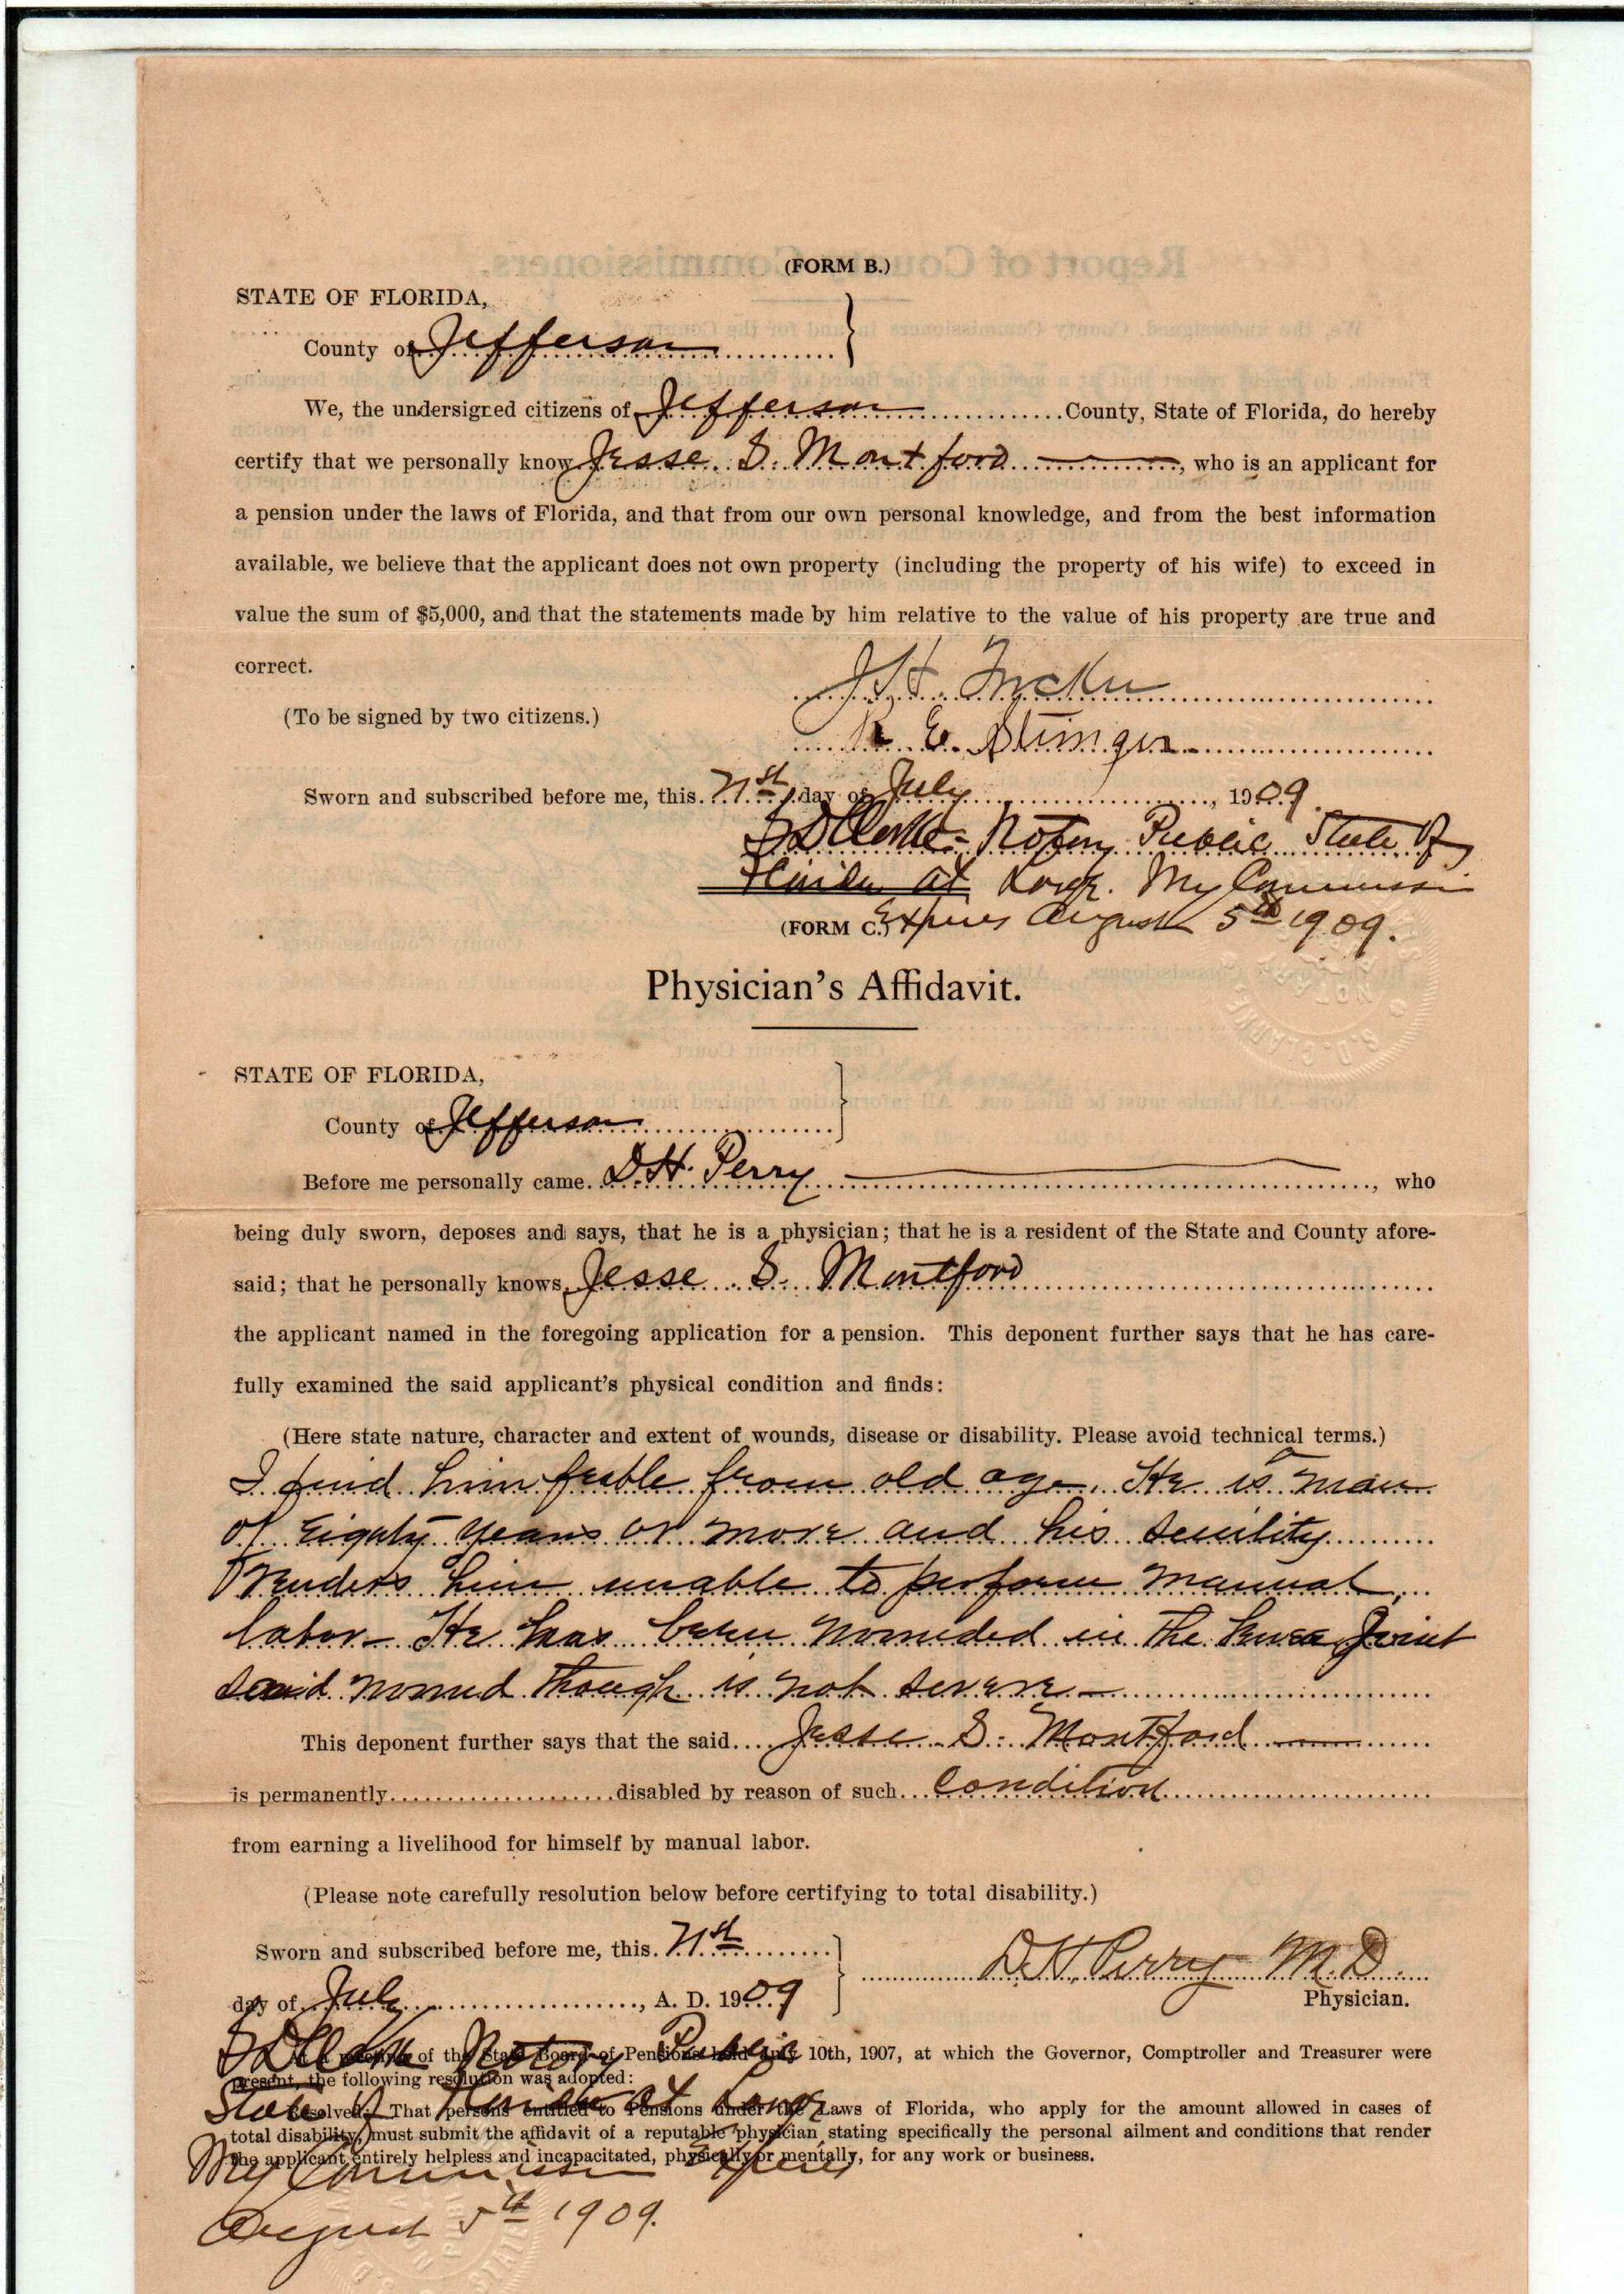 (FORM B.)
STATE OF FLORIDA,
County of Jefferson
We, the undersigned citizens of Jefferson County, State of Florida, do hereby
certify that we personally know Jesse S. Montford, who is an applicant for
a pension under the laws of Florida, and that from our own personal knowledge, and from the best information
available, we believe that the applicant does not own property (including the property of his wife) to exceed in
value the sum of $5,000, and that the statements made by him relative to the value of his property are true and
correct.
J. H.
(To be signed by two citizens.)
R. E.
Sworn and subscribed before me, this 21st day of July, 1909.
S D Clarke - Notary Public State of
Florida at Large. My Commission
(FORM C.) Expires August 5th 1909.
Physician's Affidavit.
STATE OF FLORIDA,
County of Jefferson
Before me personally came D. H. Perry, who
being duly sworn, deposes and says, that he is a physician; that he is a resident of the State and County afore-
said; that he personally knows Jesse S. Montford
the applicant named in the foregoing application for a pension. This deponent further says that he has care-
fully examined the said applicant's physical condition and finds:
(Here state nature, character and extent of wounds, disease or disability. Please avoid technical terms.)
I find him feeble from old age. He is a man
of Eighty years or more and his senility
renders him unable to perform manual
labor - He has been wounded in the knee joint
said wound though is not severe -
This deponent further says that the said Jesse S. Montford
is permanently disabled by reason of such Condition
from earning a livelihood for himself by manual labor.
(Please note carefully resolution below before certifying to total disability.)
Sworn and subscribed before me, this 21st
day of July, A. D. 1909
D. H. Perry M. D.
Physician.
S D Clarke Notary Public
State of Florida at Large
My Commission Expires
August 5th 1909.
At a meeting of the State Board of Pensions held 10th, 1907, at which the Governor, Comptroller and Treasurer were
present, the following resolution was adopted:
Resolved: That persons entitled to Pensions under the Laws of Florida, who apply for the amount allowed in cases of
total disability, must submit the affidavit of a reputable physician stating specifically the personal ailment and conditions that render
the applicant entirely helpless and incapacitated, physically or mentally, for any work or business.